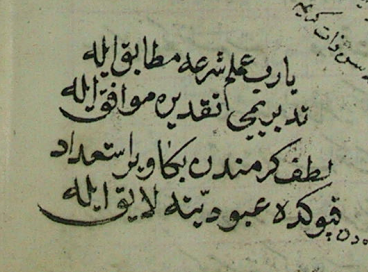 یارب عملم شرعه مطابق ایله
تدبیریمی تقدیره موافق ایله
لطف کرمندن بکا ویر استعداد
قپوکده عبودیته لایق ایله